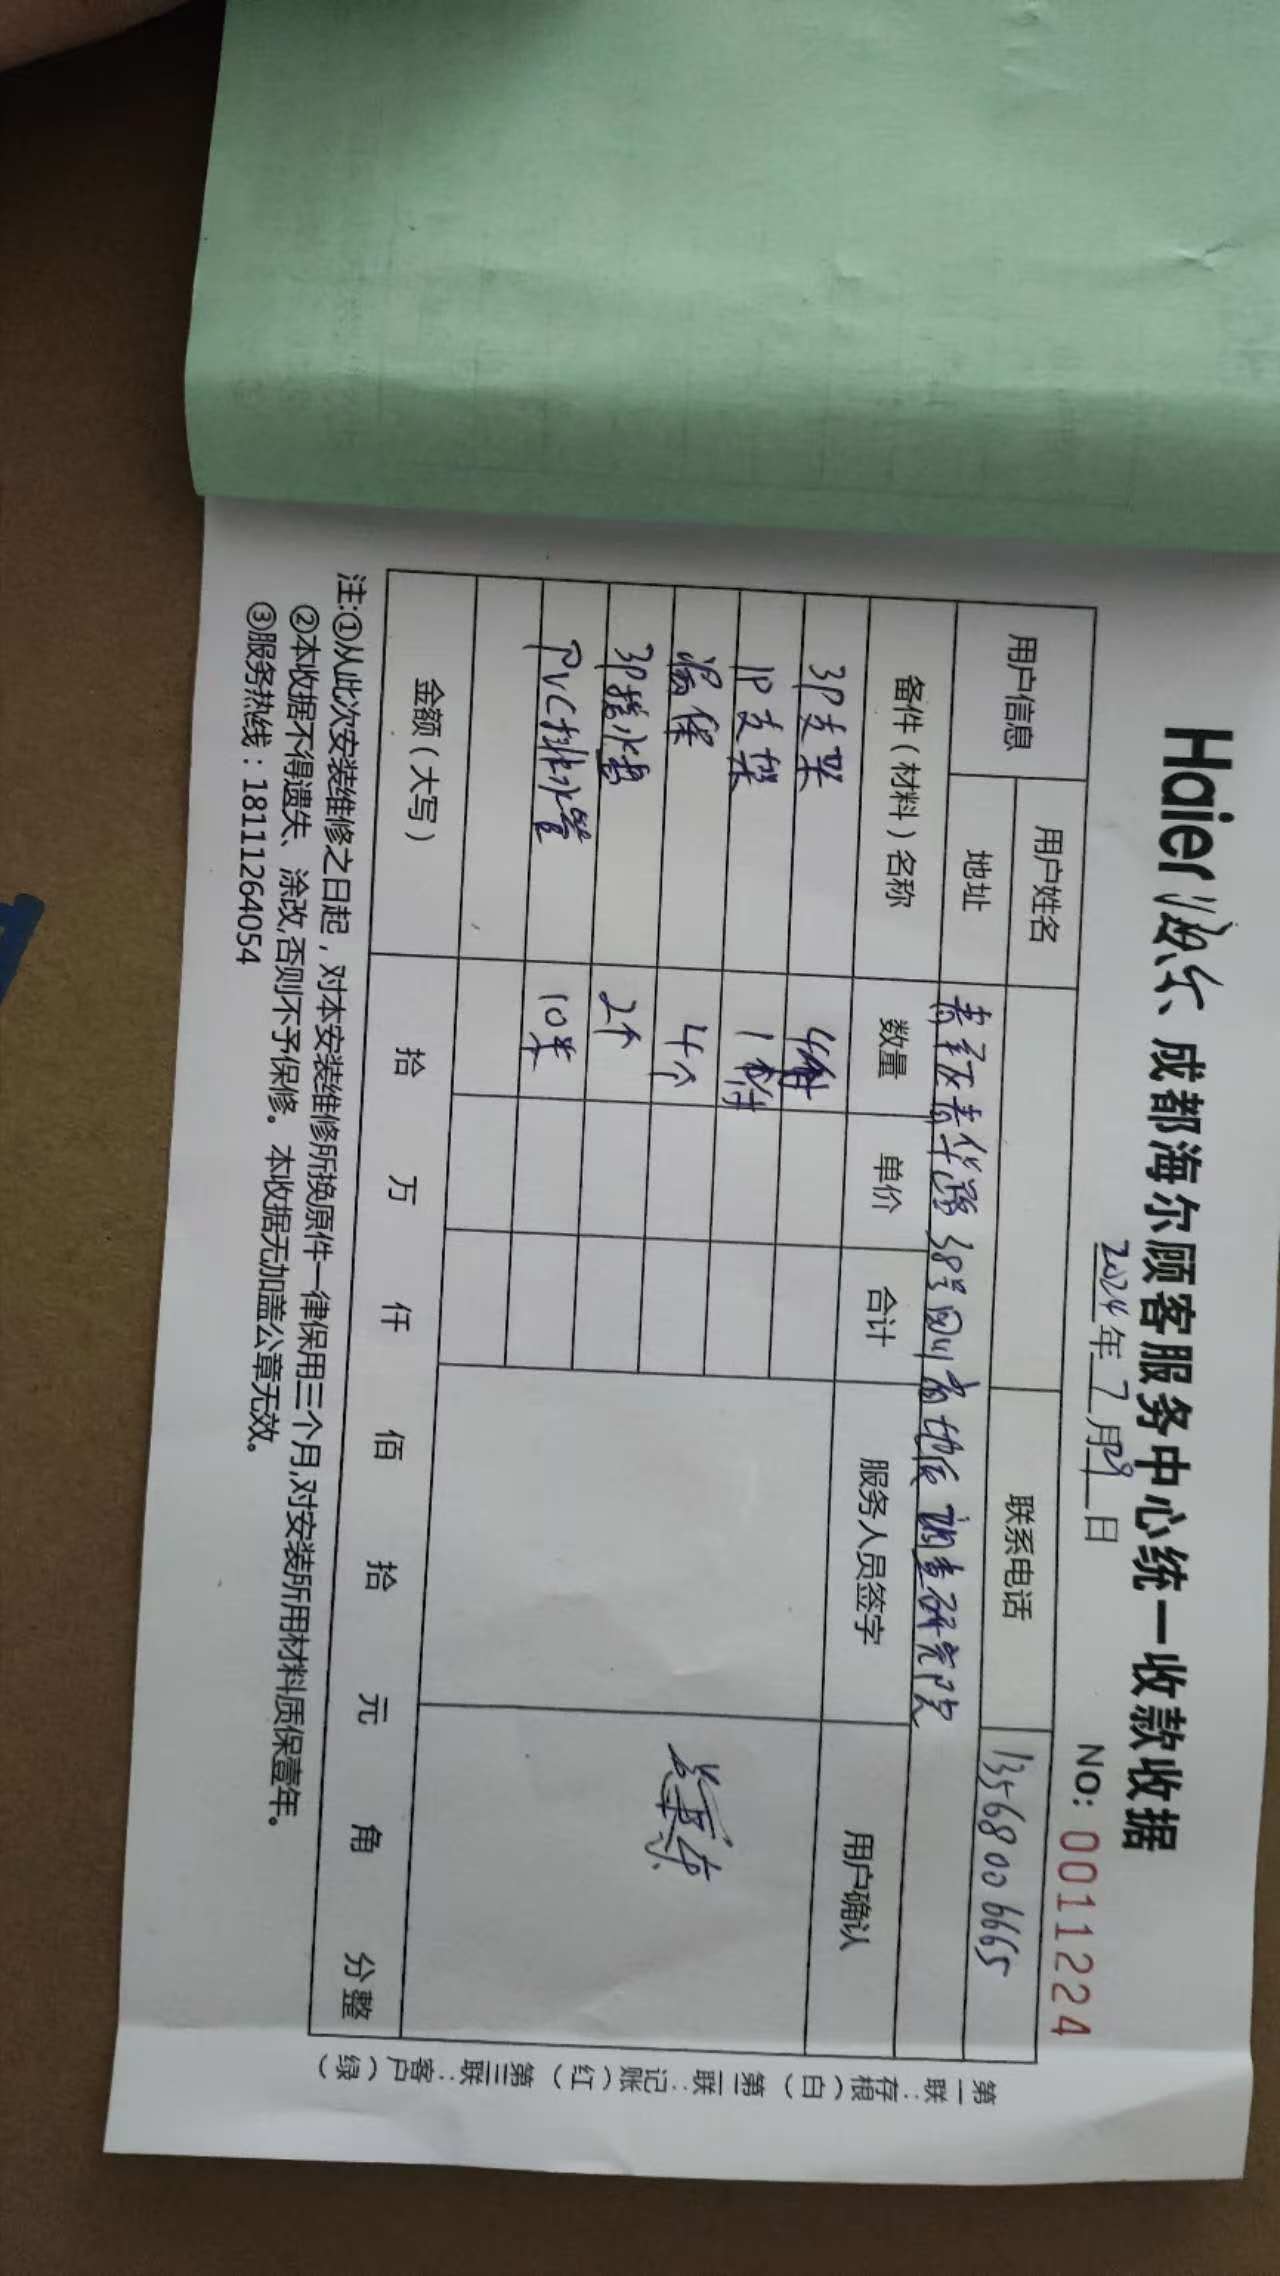 Haier 海尔 成都海尔顾客服务中心统一收款收据
2024年7月29日 NO: 0011224
用户信息 用户姓名 联系电话 13568006665
地址 青羊区青华路38号四川省地质调查研究院
备件(材料)名称 数量 单价 合计 服务人员签字 用户确认
3P支架 4付
1P支架 1付
漏保 4个
3P接水盘 2个
PVC排水管 10米
金额(大写) 拾 万 仟 佰 拾 元 角 分整
注:①从此次安装维修之日起,对本安装维修所换原件一律保用三个月,对安装所用材料质保壹年。
②本收据不得遗失、涂改,否则不予保修。本收据无加盖公章无效。
③服务热线:18111264054
第一联:存根(白) 第二联:记账(红) 第三联:客户(绿)